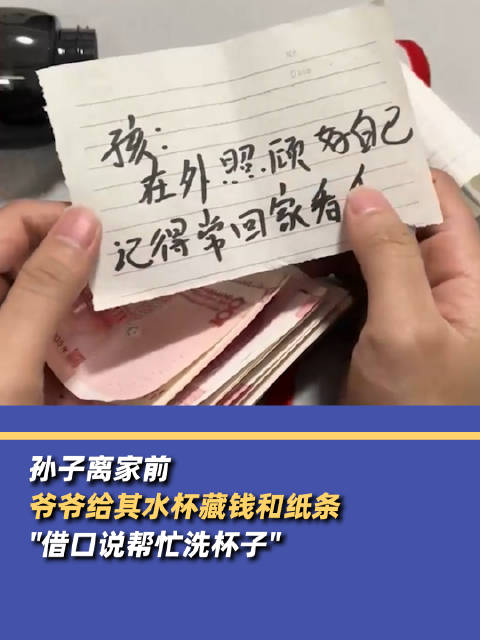 No.
Date
孩:
在外照顾好自己
记得常回家看
100
孙子离家前
爷爷给其水杯藏钱和纸条
"借口说帮忙洗杯子"